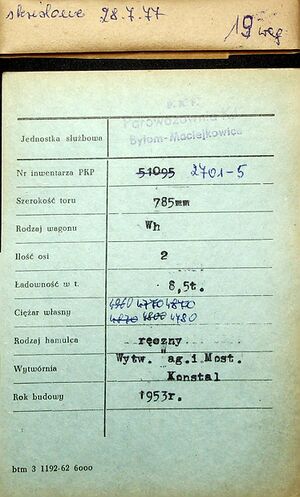 skreślono 28.7.77
19 wag
P.K.P.
Parowozownia Kl.
Bytom-Maciejkowice
Jednostka służbowa
Nr inwentarza PKP 51095 2701-5
Szerokość toru 785mm
Rodzaj wagonu Wh
Ilość osi 2
Ładowność w t. 8,5t.
4960 4770 4870
Ciężar własny 4870 4800 4780
Rodzaj hamulca ręczny
Wytw. Wag.i Most.
Wytwórnia Konstal
Rok budowy 1953r.
btm 3 1192-62 6000